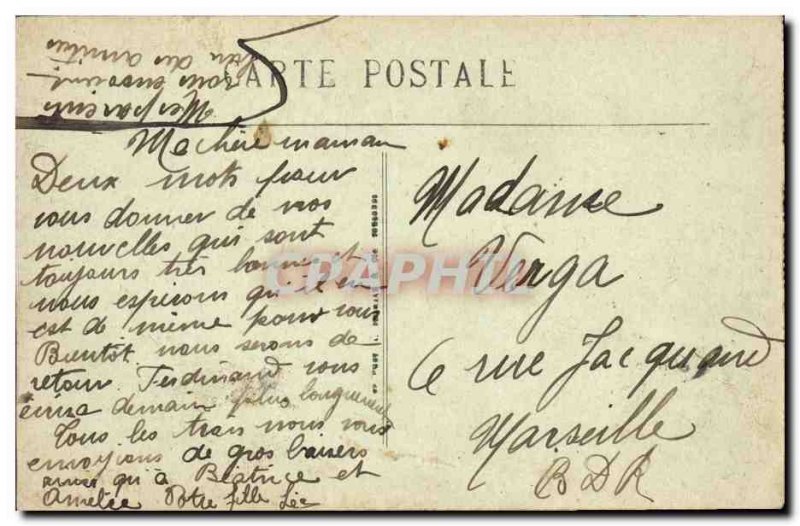 CARTE POSTALE
Mes parents
vous envoient
des amitiés
Ma chère maman
Deux mots pour
vous donner de nos
nouvelles qui sont
toujours très bonnes et
nous espérons qu'il en
est de même pour vous
Bientôt nous serons de
retour. Ferdinand vous
demain plus longuement
Tous les trois nous vous
envoyons de gros baisers
ainsi qu'à Béatrice et
Amélie Votre fille
Madame
Verga
6 rue Jacquard
Marseille
B D R
CRAPHIL